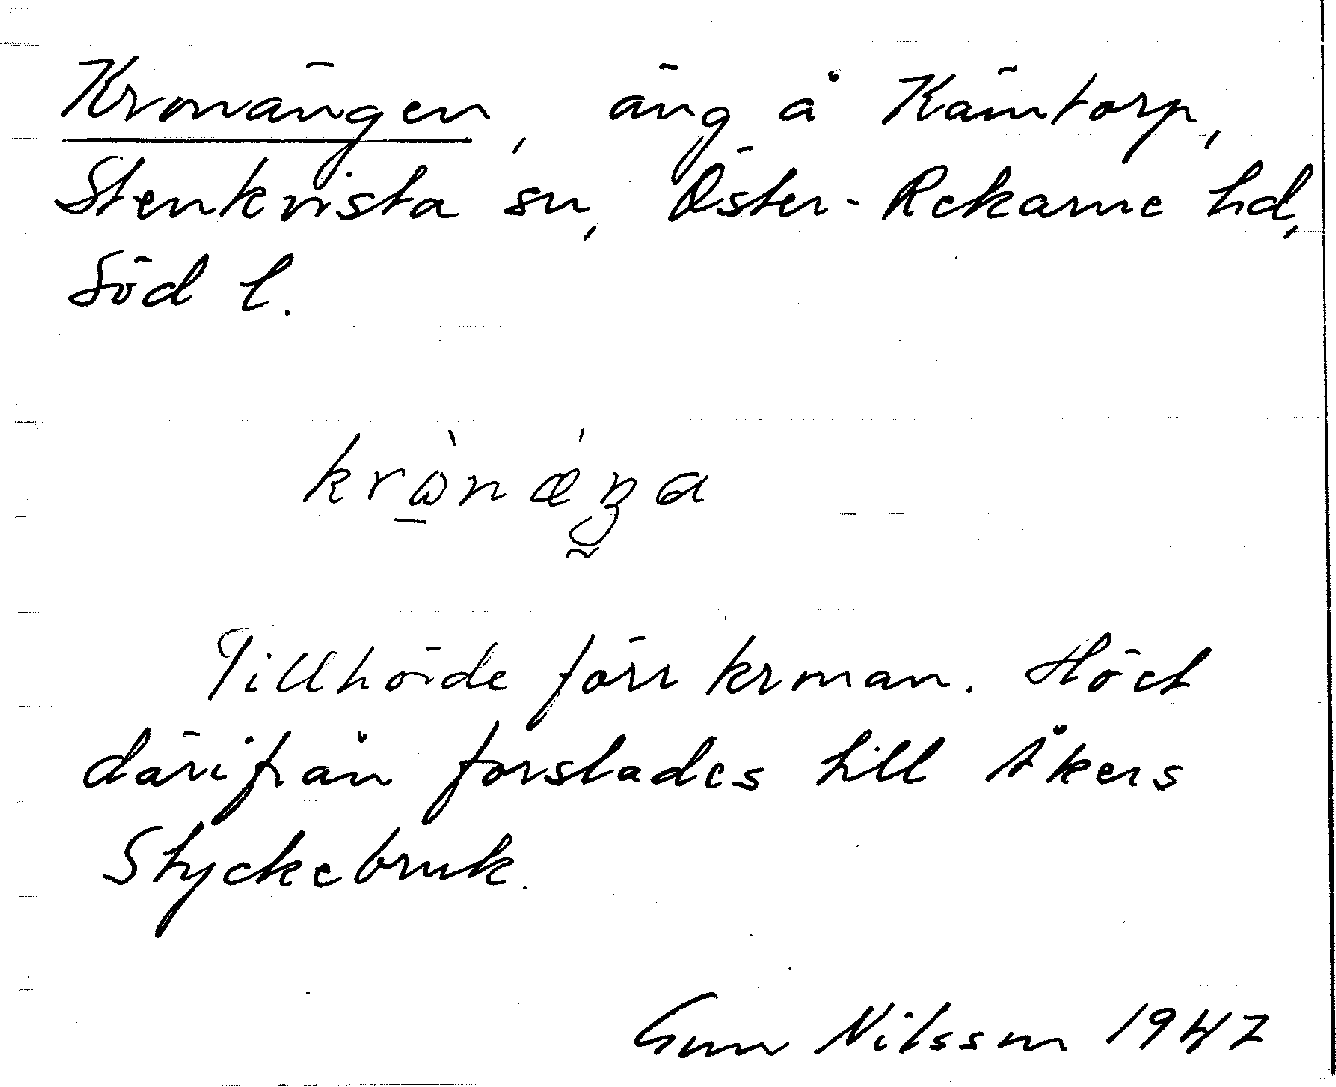 Kronängen, äng å Kämtorp,
Stenkvista sn, Öster-Rekarne hd,
Söd l.
Tillhörde förr kronan. Höet
därifrån forslades till Åkers
Styckebruk.
Gun Nilsson 1947